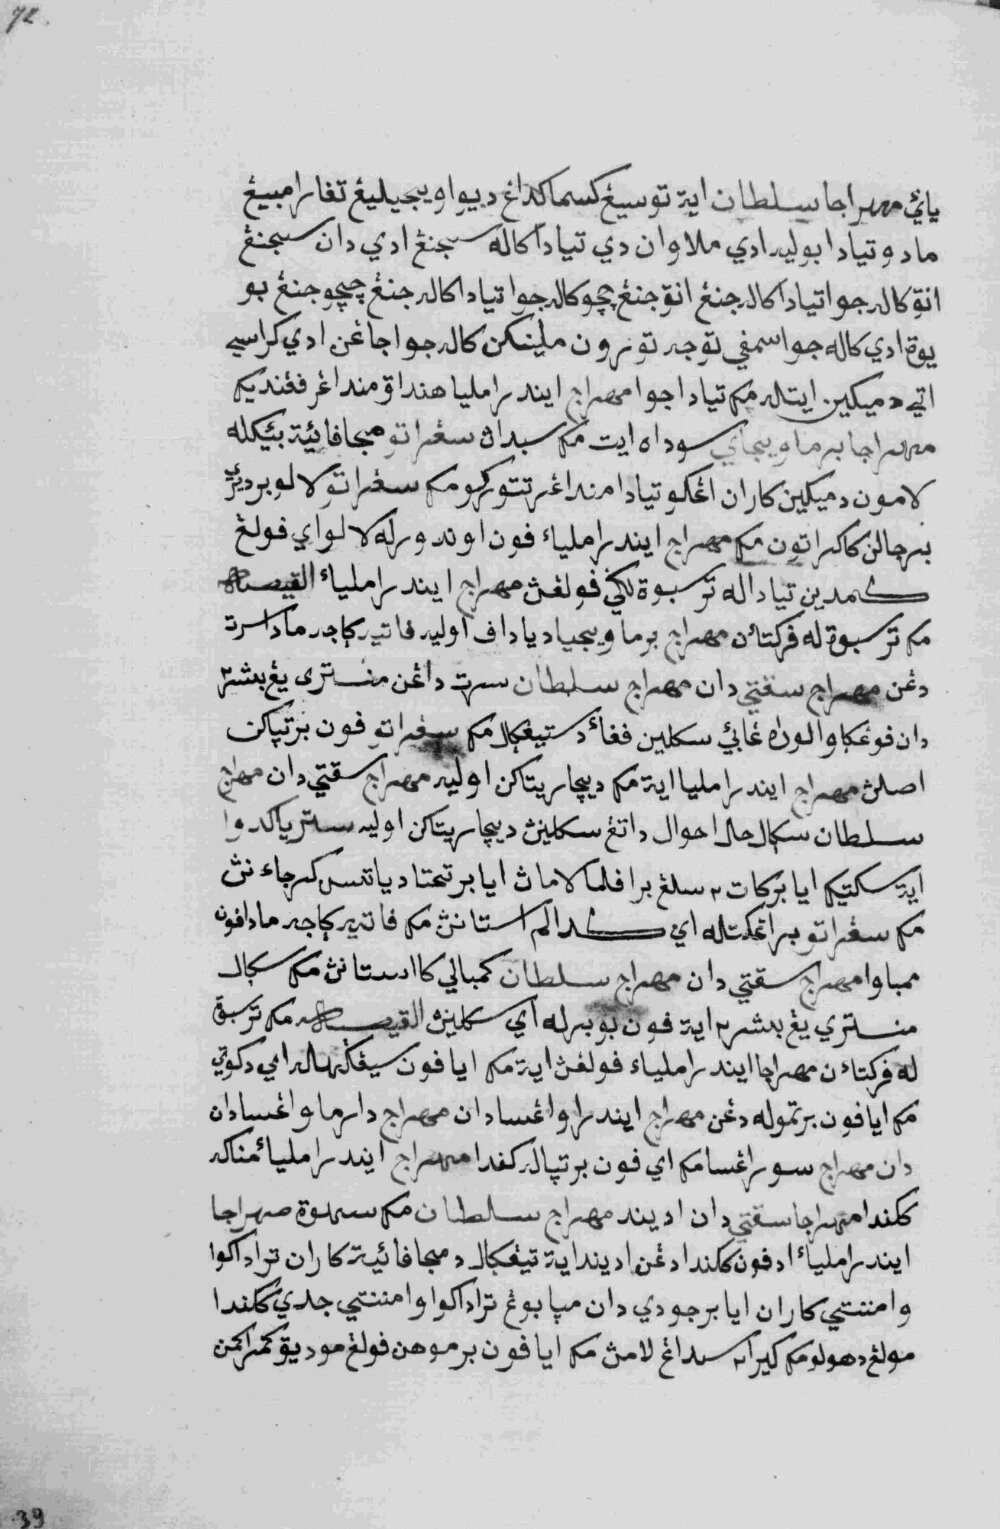 72.
يائيت مهراجا سلطان ايت توسيڠ كسماكداڠ ديوا ويجيليڠ تفاسرامبيڠ
مادو تيادا بوليه ادي ملاوان دي تيادا كاله سجنڠ ادي دان سجنڠ
انق كاله جوا تيادا كاله جنڠ انق جنڠ چوچو كاله جوا تيادا كاله جنڠ چوچو جنڠ بو
يوة ادي كاله جوا سمفي توجه تورون ملينكن كاله جوا جاڠن ادي كراسي
اتي دميكين ايتله مك تيادا جوا مهراج ايندرا مليا هندق منداڠر فڠنديك
مهراجا برما ويجاي سوداه ايت مك سبداڽ سڠراتو مڠافائيت بڬيكله
لامون دميكين كاران اڠكو تيادا منداڠر توتوركو مك سڠراتو لالو برديري
برجالن كاكراتون مك مهراج ايندرا ملياء فون اوندورله لالو اي فولڠ
كمدين تياداله ترسبوة لاكي فولڠڽ مهراج ايندرا ملياء القيصه
مك ترسبوة له فركتائن مهراج برما ويجيا دياداف اوليه فاتيه كاجه مادا سرت
دڠن مهراج سقتي دان مهراج سلطان سرت داڠن منتري يڠ بسر٢
دان فوڠكاوا الوراه ڠابي سكلين فڠاڬ دستيڠكل مك سڠراتو فون برتياكن
اصلڽ مهراج ايندرا مليا ايت مك ديچاريتاكن اوليه مهراج سقتي دان مهراج
سلطان سكال حال احوال داتڠ سكلينڽ ديچاريتاكن اوليه ستريا كدوا
ايت سكتيك ايا بركات٢ سلڠ برافا لماڽ ايا برتحتا دياتس كرجاءنڽ
مك سڠراتو براڠكتله اي كدالم استانڽ مك فاتيه كاجه مادا فون
ممباوا مهراج سقتي دان مهراج سلطان كمبالي كااستانڽ مك سكال
منتري يڠ بسر٢ ايت فون بوبرله اي سكلينڽ القيصه مك ترسبوة
له فركتائن مهراجا ايندرا ملياء فولڠڽ ايت مك ايا فون سيڠكهاله اي دكوتي
مك ايا فون برتموله دڠن مهراج ايندرا واڠسا دان مهراج دارما واڠسا دان
دان مهراج سوراڠسا مك اي فون برتياله كفدا مهراج ايندرا ملياء مناكه
ككندا مهراجا سقتي دان اديند مهراج سلطان مك سهوة مهراجا
ايندرا ملياء ادفون ككندا دڠن اديندا ايت تيڠكل دمڠافائيت كاران ترادا كوا
وا مننتي كاران ايا برجودي دان مڽابوڠ ترادا كوا وا مننتي جدي ككندا
مولڠ دهولو مك كيرا٢ سداڠ لامڽ مك ايا فون برموهن فولڠ موديق كمراكن
39